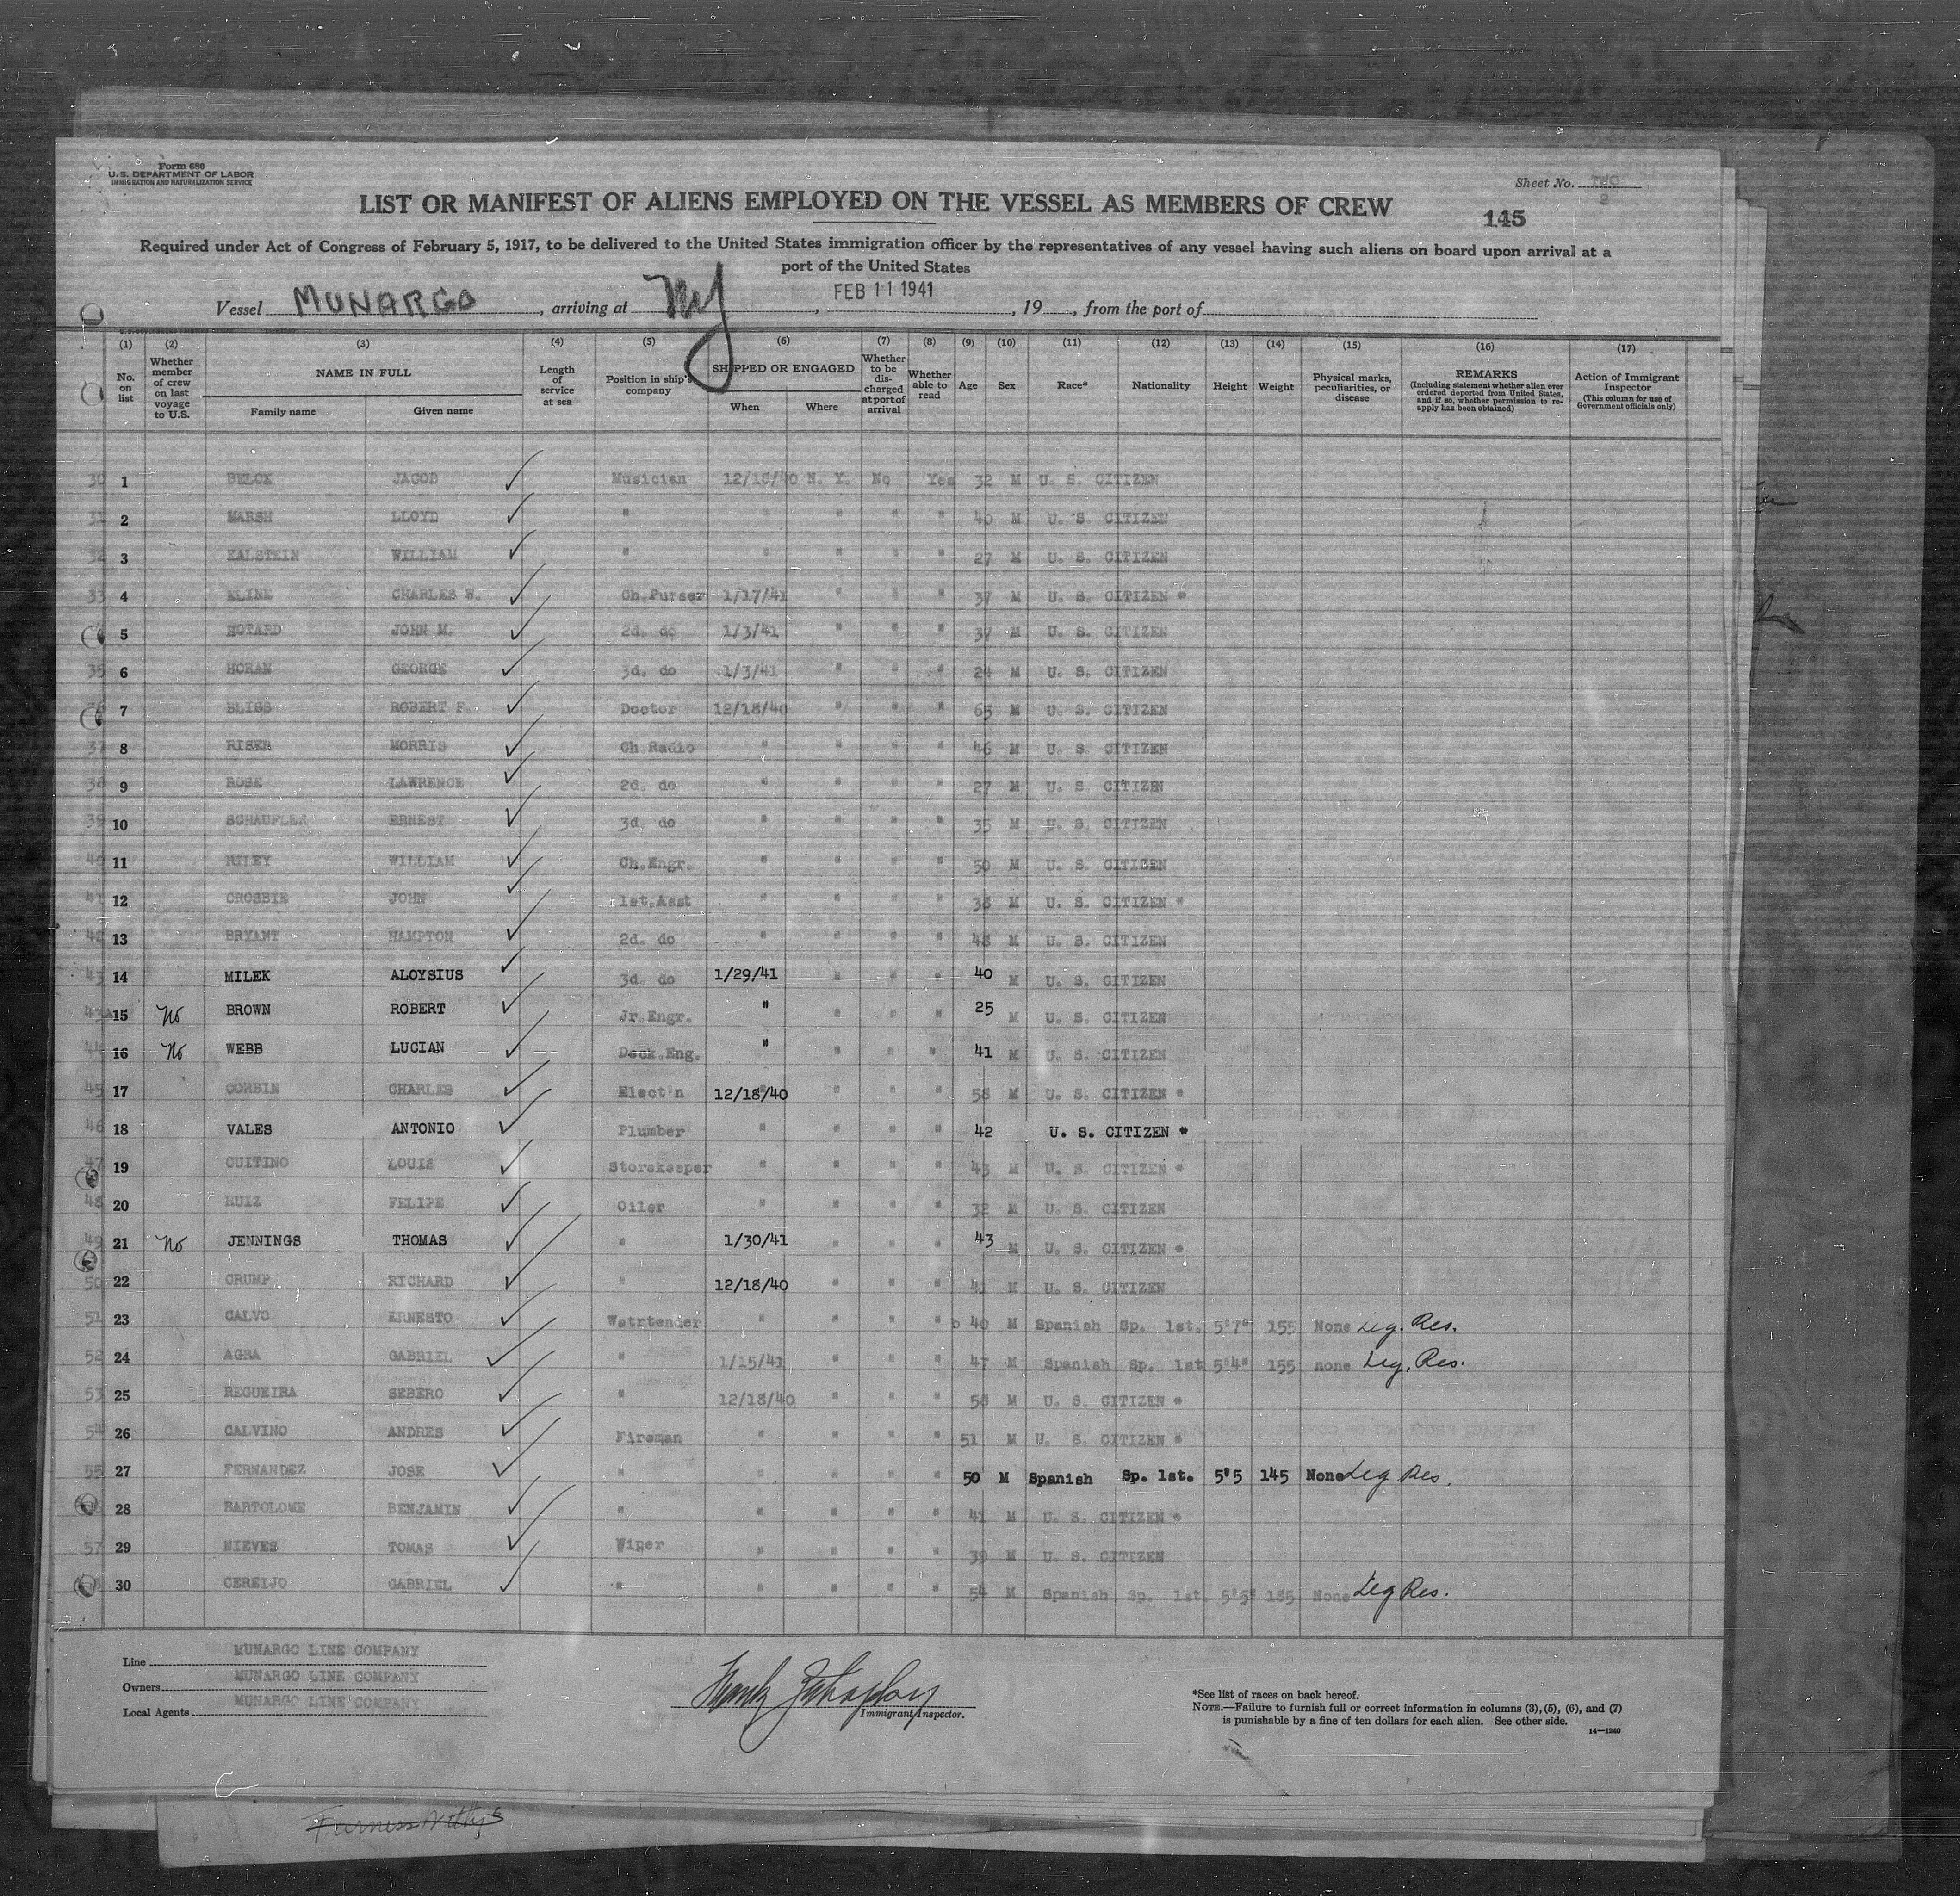 Form 680
U.S. DEPARTMENT OF LABOR
IMMIGRATION AND NATURALIZATION SERVICE
Sheet No. TWO
2
LIST OR MANIFEST OF ALIENS EMPLOYED ON THE VESSEL AS MEMBERS OF CREW
145
Required under Act of Congress of February 5, 1917, to be delivered to the United States immigration officer by the representatives of any vessel having such aliens on board upon arrival at a
port of the United States
Vessel MUNARGO, arriving at NY, FEB 11 1941, 19, from the port of
(1) No. on list (2) Whether member of crew on last voyage to U.S. (3) NAME IN FULL Family name Given name (4) Length of service at sea (5) Position in ship's company (6) SHIPPED OR ENGAGED When Where (7) Whether to be discharged at port of arrival (8) Whether able to read (9) Age (10) Sex (11) Race* (12) Nationality (13) Height (14) Weight (15) Physical marks, peculiarities, or disease (16) REMARKS (Including statement whether alien ever ordered deported from United States, and if so, whether permission to reapply has been obtained) (17) Action of Immigrant Inspector (This column for use of Government officials only)
30 1 BELCK JACOB Musician 12/18/40 N. Y. No Yes 32 M U. S. CITIZEN
31 2 MARSH LLOYD " " " " " 40 M U. S. CITIZEN
32 3 KALSTEIN WILLIAM " " " " " 27 M U. S. CITIZEN
33 4 KLINE CHARLES W. Ch.Purser 1/17/41 " " " 37 M U. S. CITIZEN *
5 HOTARD JOHN M. 2d. do 1/3/41 " " " 37 M U. S. CITIZEN
35 6 HORAN GEORGE 3d. do 1/3/41 " " " 24 M U. S. CITIZEN
7 BLISS ROBERT F. Doctor 12/18/40 " " " 65 M U. S. CITIZEN
37 8 RISER MORRIS Ch.Radio " " " " 46 M U. S. CITIZEN
38 9 ROSE LAWRENCE 2d. do " " " " 27 M U. S. CITIZEN
39 10 SCHAUFLER ERNEST 3d. do " " " " 35 M U. S. CITIZEN
40 11 RILEY WILLIAM Ch.Engr. " " " " 50 M U. S. CITIZEN
41 12 CROSBIE JOHN 1st.Asst " " " " 38 M U. S. CITIZEN *
42 13 BRYANT HAMPTON 2d. do " " " " 48 M U. S. CITIZEN
43 14 MILEK ALOYSIUS 3d. do 1/29/41 " " " 40 M U. S. CITIZEN
43A 15 No BROWN ROBERT Jr.Engr. " " " " 25 M U. S. CITIZEN
44 16 No WEBB LUCIAN Deck.Eng. " " " " 41 M U. S. CITIZEN
45 17 CORBIN CHARLES Elect'n 12/18/40 " " " 58 M U. S. CITIZEN *
46 18 VALES ANTONIO Plumber " " " " 42 U. S. CITIZEN *
47 19 CUITINO LOUIS Storekeeper " " " " 43 M U. S. CITIZEN *
48 20 RUIZ FELIPE Oiler " " " " 32 M U. S. CITIZEN
49 21 No JENNINGS THOMAS " 1/30/41 " " " 43 M U. S. CITIZEN *
50 22 CRUMP RICHARD " 12/18/40 " " " 41 M U. S. CITIZEN
51 23 CALVO ERNESTO Watrtender " " " " 40 M Spanish Sp. 1st. 5'7" 155 None Leg. Res.
52 24 AGRA GABRIEL " 1/15/41 " " " 47 M Spanish Sp. 1st 5'4" 155 none Leg. Res.
53 25 REGUEIRA SEBERO " 12/18/40 " " " 58 M U. S. CITIZEN *
54 26 CALVINO ANDRES Fireman " " " " 51 M U. S. CITIZEN *
55 27 FERNANDEZ JOSE " " " " " 50 M Spanish Sp. 1st. 5'5 145 None Leg Res.
28 BARTOLOME BENJAMIN " " " " " 41 M U. S. CITIZEN *
57 29 NIEVES TOMAS Wiper " " " " 39 M U. S. CITIZEN
30 CEREIJO GABRIEL " " " " " 54 M Spanish Sp. 1st. 5'5" 185 None Leg Res.
Line MUNARGO LINE COMPANY
Owners MUNARGO LINE COMPANY
Local Agents MUNARGO LINE COMPANY
Immigrant Inspector.
*See list of races on back hereof.
NOTE.—Failure to furnish full or correct information in columns (3), (5), (6), and (7)
is punishable by a fine of ten dollars for each alien. See other side.
14—1240
Furness Withy